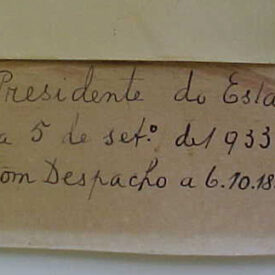 Presidente do Esta
a 5 de setº de 1933
om Despacho a 6.10.18